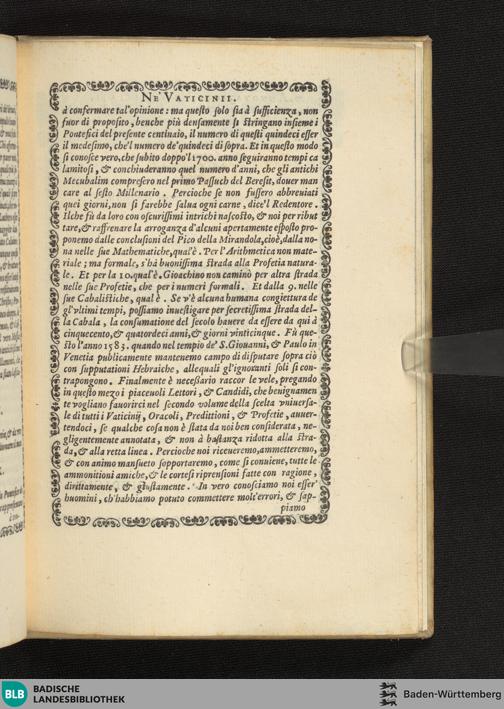 NE VATICINII.
à confermare tal'opinione: ma questo solo sia à sufficienza, non
fuor di proposito, benche più densamente si stringano insieme i
Pontefici del presente centinaio, il numero di questi quindeci esser
il medesimo, che'l numero de'quindeci di sopra. Et in questo modo
si conosce vero, che subito doppo'l 1700. anno seguiranno tempi ca
lamitosi, & conchiuderanno quel numero d'anni, che gli antichi
Mecubalim compresero nel primo Passuch del Beresit, douer man
care al sesto Millenario. Percioche se non fussero abbreuiati
quei giorni, non si farebbe salua ogni carne, dice'l Redentore.
Ilche fù da loro con oscurissimi intrichi nascosto, & noi per ribut
tare, & raffrenare la arroganza d'alcuni apertamente esposto pro-
ponemo dalle conclusioni del Pico della Mirandola, cioè, dalla no-
na nelle sue Mathematiche, qual'è. Per l'Arithmetica non mate-
riale; ma formale, s'hà buonissima strada alla Profetia natura-
le. Et per la 10. qual'è. Gioachino non caminò per altra strada
nelle sue Profetie, che per i numeri formali. Et dalla 9. nelle
sue Cabalistiche, qual è. Se v'è alcuna humana congiettura de
gl'vltimi tempi, possiamo inuestigare per secretissima strada del-
la Cabala, la consumatione del secolo hauere da essere da qui à
cinquecento, & quatordeci anni, & giorni vinticinque. Fù que-
sto l'anno 1583. quando nel tempio de' S. Giouanni, & Paulo in
Venetia publicamente mantenemo campo di disputare sopra ciò
con supputationi Hebraiche, allequali gl'ignoranti soli si con-
trapongono. Finalmente è necessario raccor le vele, pregando
in questo mezo i piaceuoli Lettori, & Candidi, che benignamen
te vogliano fauorirci nel secondo volume della scelta vniuersa-
le di tutti i Vaticinij, Oracoli, Predittioni, & Profetie, auuer-
tendoci, se qualche cosa non è stata da noi ben considerata, ne-
gligentemente annotata, & non à bastanza ridotta alla stra-
da, & alla retta linea. Percioche noi riceueremo, ammetteremo,
& con animo mansueto sopportaremo, come si conuiene, tutte le
ammonitioni amiche, & le cortesi riprensioni fatte con ragione,
dirittamente, & giustamente. In vero conosciamo noi esser'
huomini, ch'habbiamo potuto commettere molt'errori, & sap-
piamo
BLB BADISCHE
LANDESBIBLIOTHEK
Baden-Württemberg